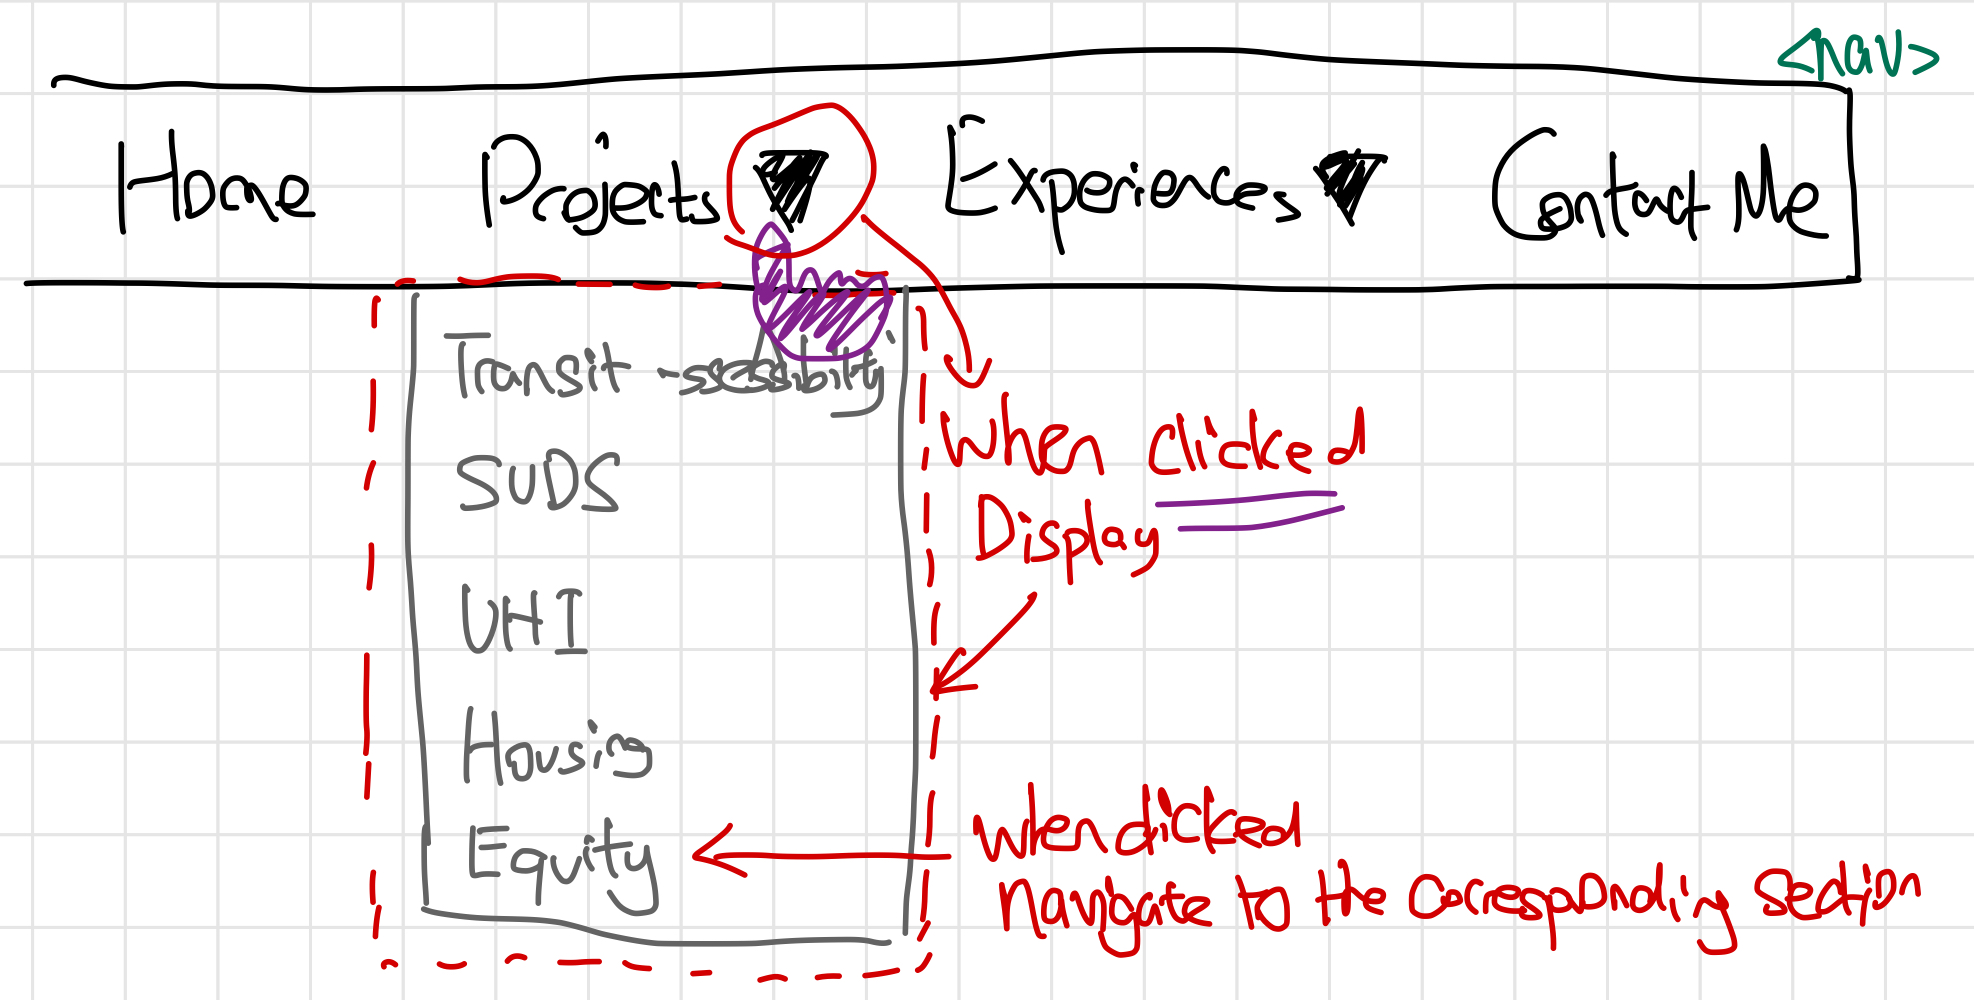 <nav>
Home Projects Experiences Contact Me
Transit
SUDS
UHI
Housing
Equity
When clicked
Display
When clicked
navigate to the corresponding section